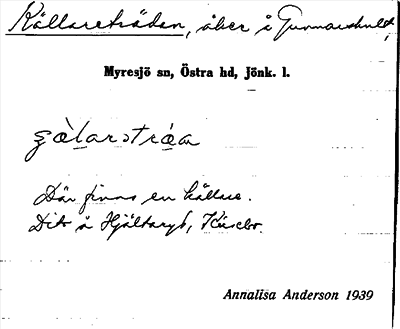 Källareträdan, åker å Gunnarshult,
Myresjö sn, Östra hd, Jönk. l.
Där finns en källare.
Dito å Hjältaryd, Kusebo.
Annalisa Anderson 1939